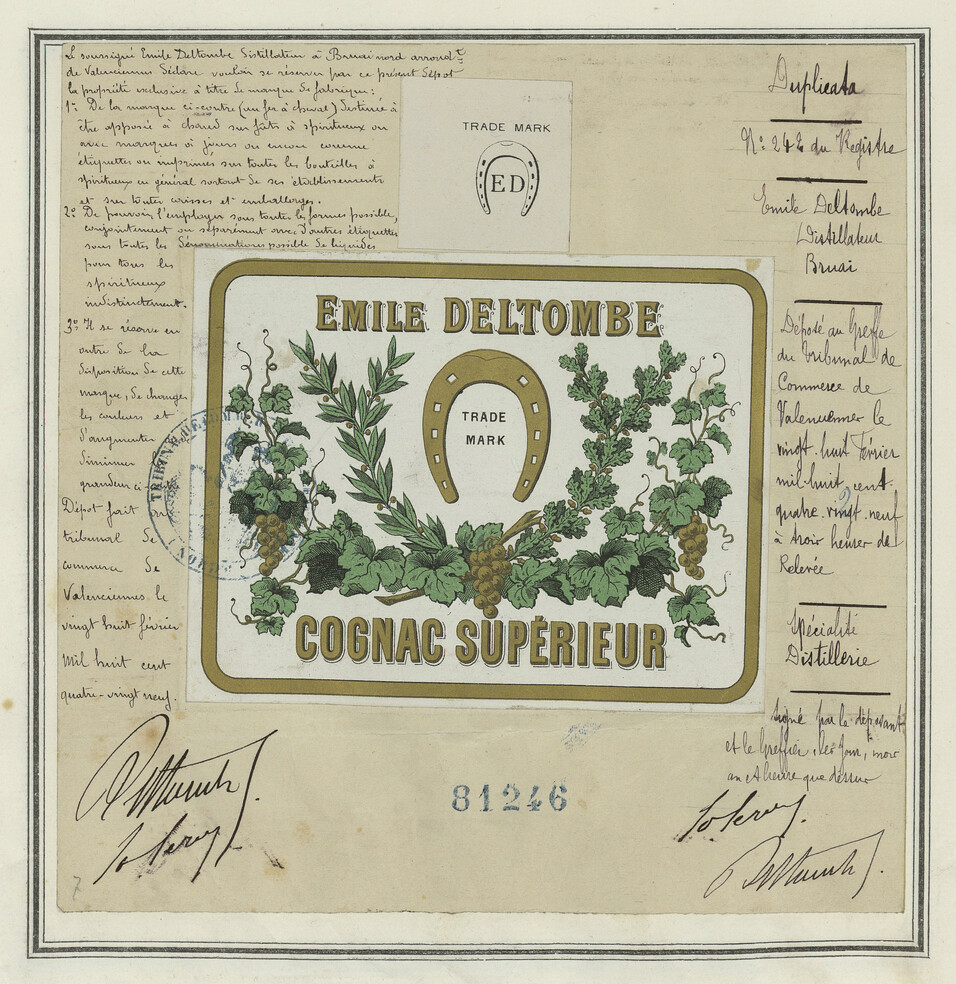 Le soussigné Emile Deltombe Distillateur à Bruai nord arrondt
de Valenciennes Déclare vouloir se réserver par ce présent Dépot
la propriété exclusive à titre de marque de fabrique:
1º: De la marque ci-contre (un fer à cheval) destinée à
être apposée à chaud sur fûts à spiritueux ou
avec marques à jours ou encore comme
étiquettes ou imprimés sur toutes les bouteilles à
spiritueux en général sortant de ses établissements
et sur toutes caisses et emballages.
2º De pouvoir l'employer sous toutes les formes possible,
conjointement ou séparément avec d'autres étiquettes
sous toutes les Dénominations possible de liquides
pour tous les
spiritueux
indistinctement.
3º Il se réserve en
outre de la
disposition de cette
marque, de changer
les couleurs et
d'augmenter
diminuer
grandeur ci-
Dépot fait au
tribunal de
commerce de
Valenciennes le
vingt huit février
mil huit cent
quatre-vingt neuf.
TRADE MARK
ED
EMILE DELTOMBE
TRADE
MARK
COGNAC SUPÉRIEUR
TRIBUNAL DE COMMERCE
Duplicata
Nº: 242 du Registre
Emile Deltombe
Distillateur
Bruai
Déposé au Greffe
du tribunal de
Commerce de
Valenciennes le
vingt-huit Février
mil-huit cent-
quatre-vingt-neuf
à trois heures de
Relevée
Spécialité
Distillerie
Signé par le déposant
et le Greffier, les Jour, mois
an et heure que dessus
Deltombe
81246
Deltombe
7